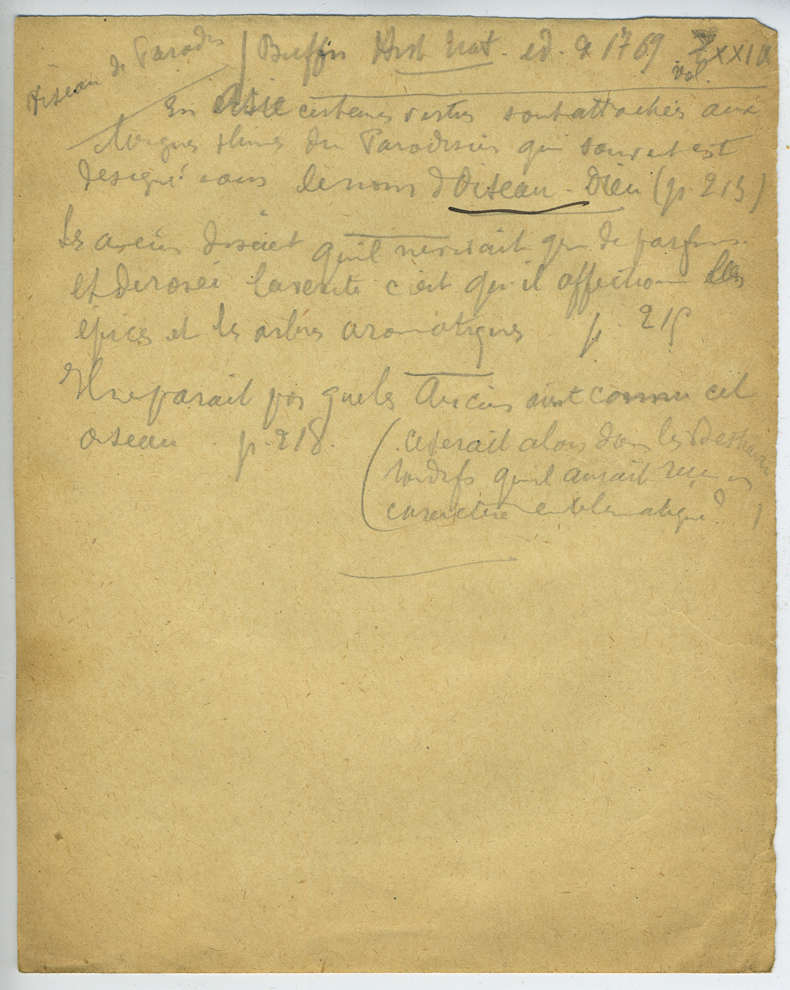 Oiseau de Paradis / Buffon Hist Nat. ed. de 1769 XXXIX
vol.
En Asie certaines vertus sont attachées aux
longues plumes du Paradisier qui souvent est
designé sous le nom d'Oiseau-Dieu (p. 213)
Les anciens disaient qu'il ne vivait que de parfums
et de rosée la verité c'est qu'il affectionne les
épices et les arbres aromatiques p 215
Il ne parait pas que les Anciens aient connu cet
oiseau p. 218.
(ce serait alors dans les Bestiaires
tardifs qu'il aurait reçu un
caractère emblematique? )